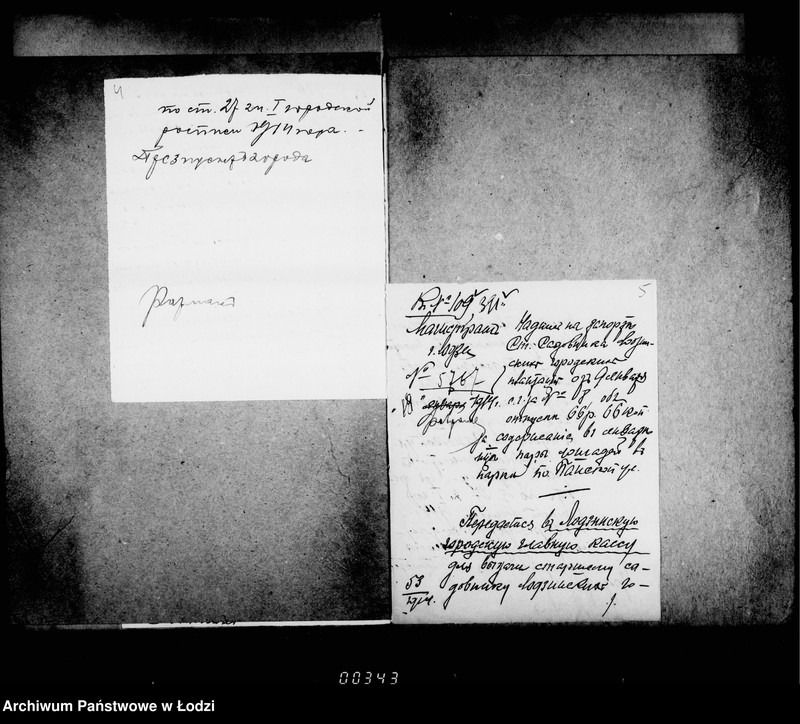 4
по ст. 27 гл. I городской
росписи 1914 года.
Президентъ города
5
Магистратъ
г. Лодзи
№ 5767
18 февраля 1914 г.
Надпись на рапортѣ
Ст. Садовника Лодзи-
нскихъ городскихъ
плантацій отъ 9 января
с.г. за № объ
отпускѣ 66 р. 66 коп.
за содержаніе въ январѣ
пары лошадей въ
паркѣ по Паньской ул.
Передается въ Лодзинскую
городскую главную кассу
для выдачи старшему са-
довнику Лодзинскихъ го-
53
1914.
00343
Archiwum Państwowe w Łodzi